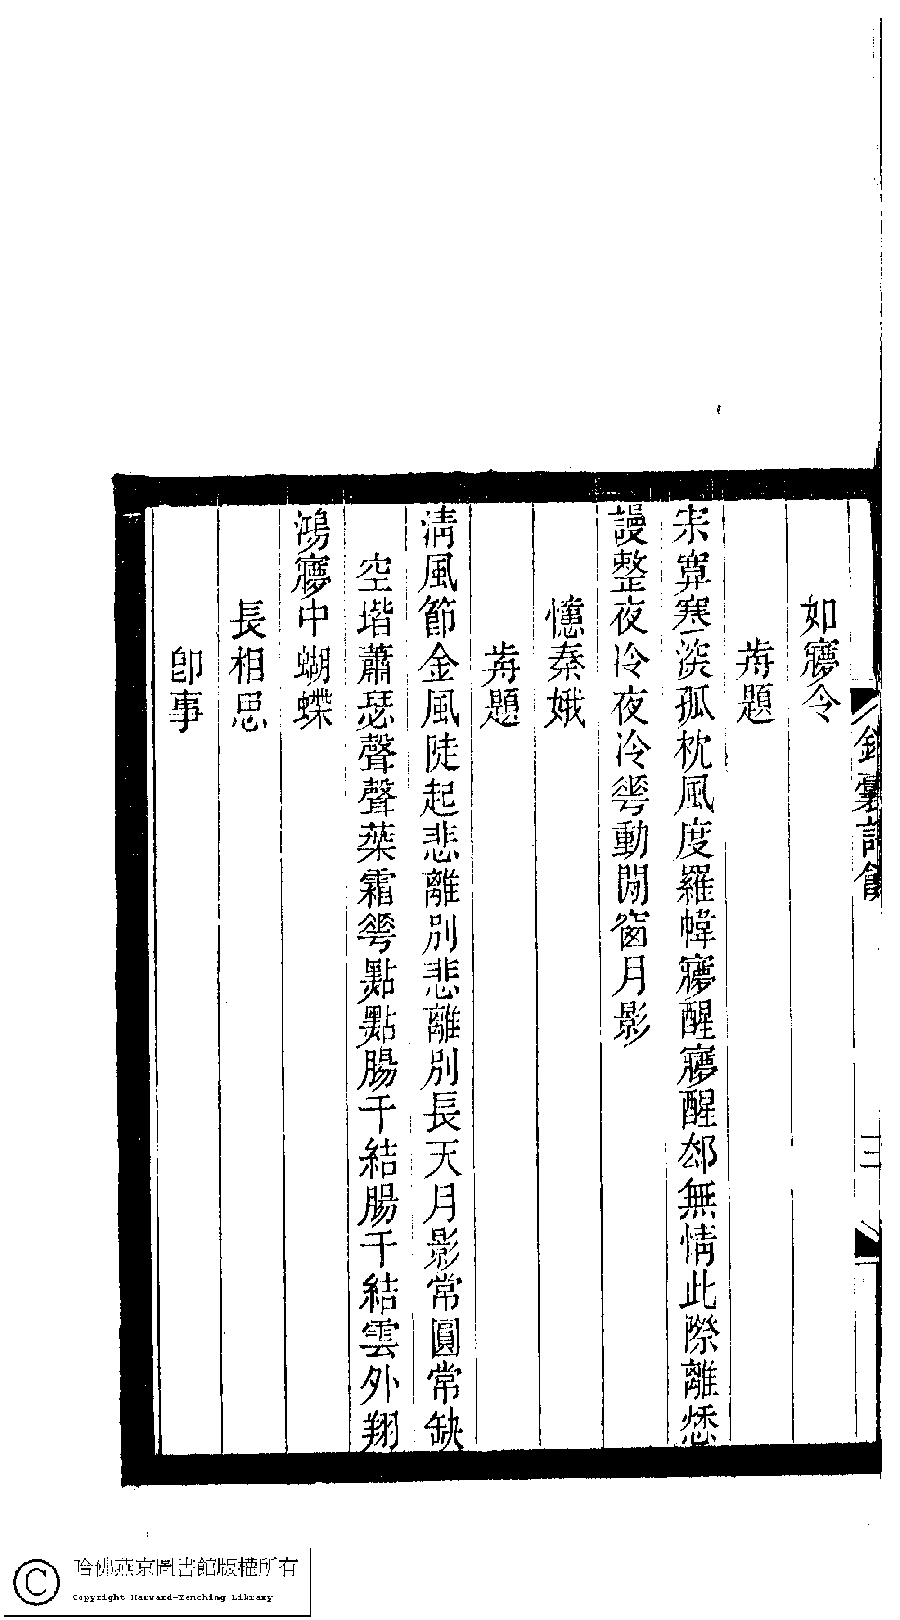 錦囊詩餘
三
如㝱令
歬題
寂寞寒淡孤枕風度羅幃㝱醒㝱醒郤無情此際離愁
謾整夜冷夜冷花動閒窗月影
憶秦娥
歬題
清風節金風陡起悲離別悲離別長天月影常圓常缺
空堦蕭瑟聲聲葉霜花點點腸千結腸千結雲外翔
鴻㝱中蝴蝶
長相思
卽事
哈佛燕京圖書館版權所有
Copyright Harvard-Yenching Library